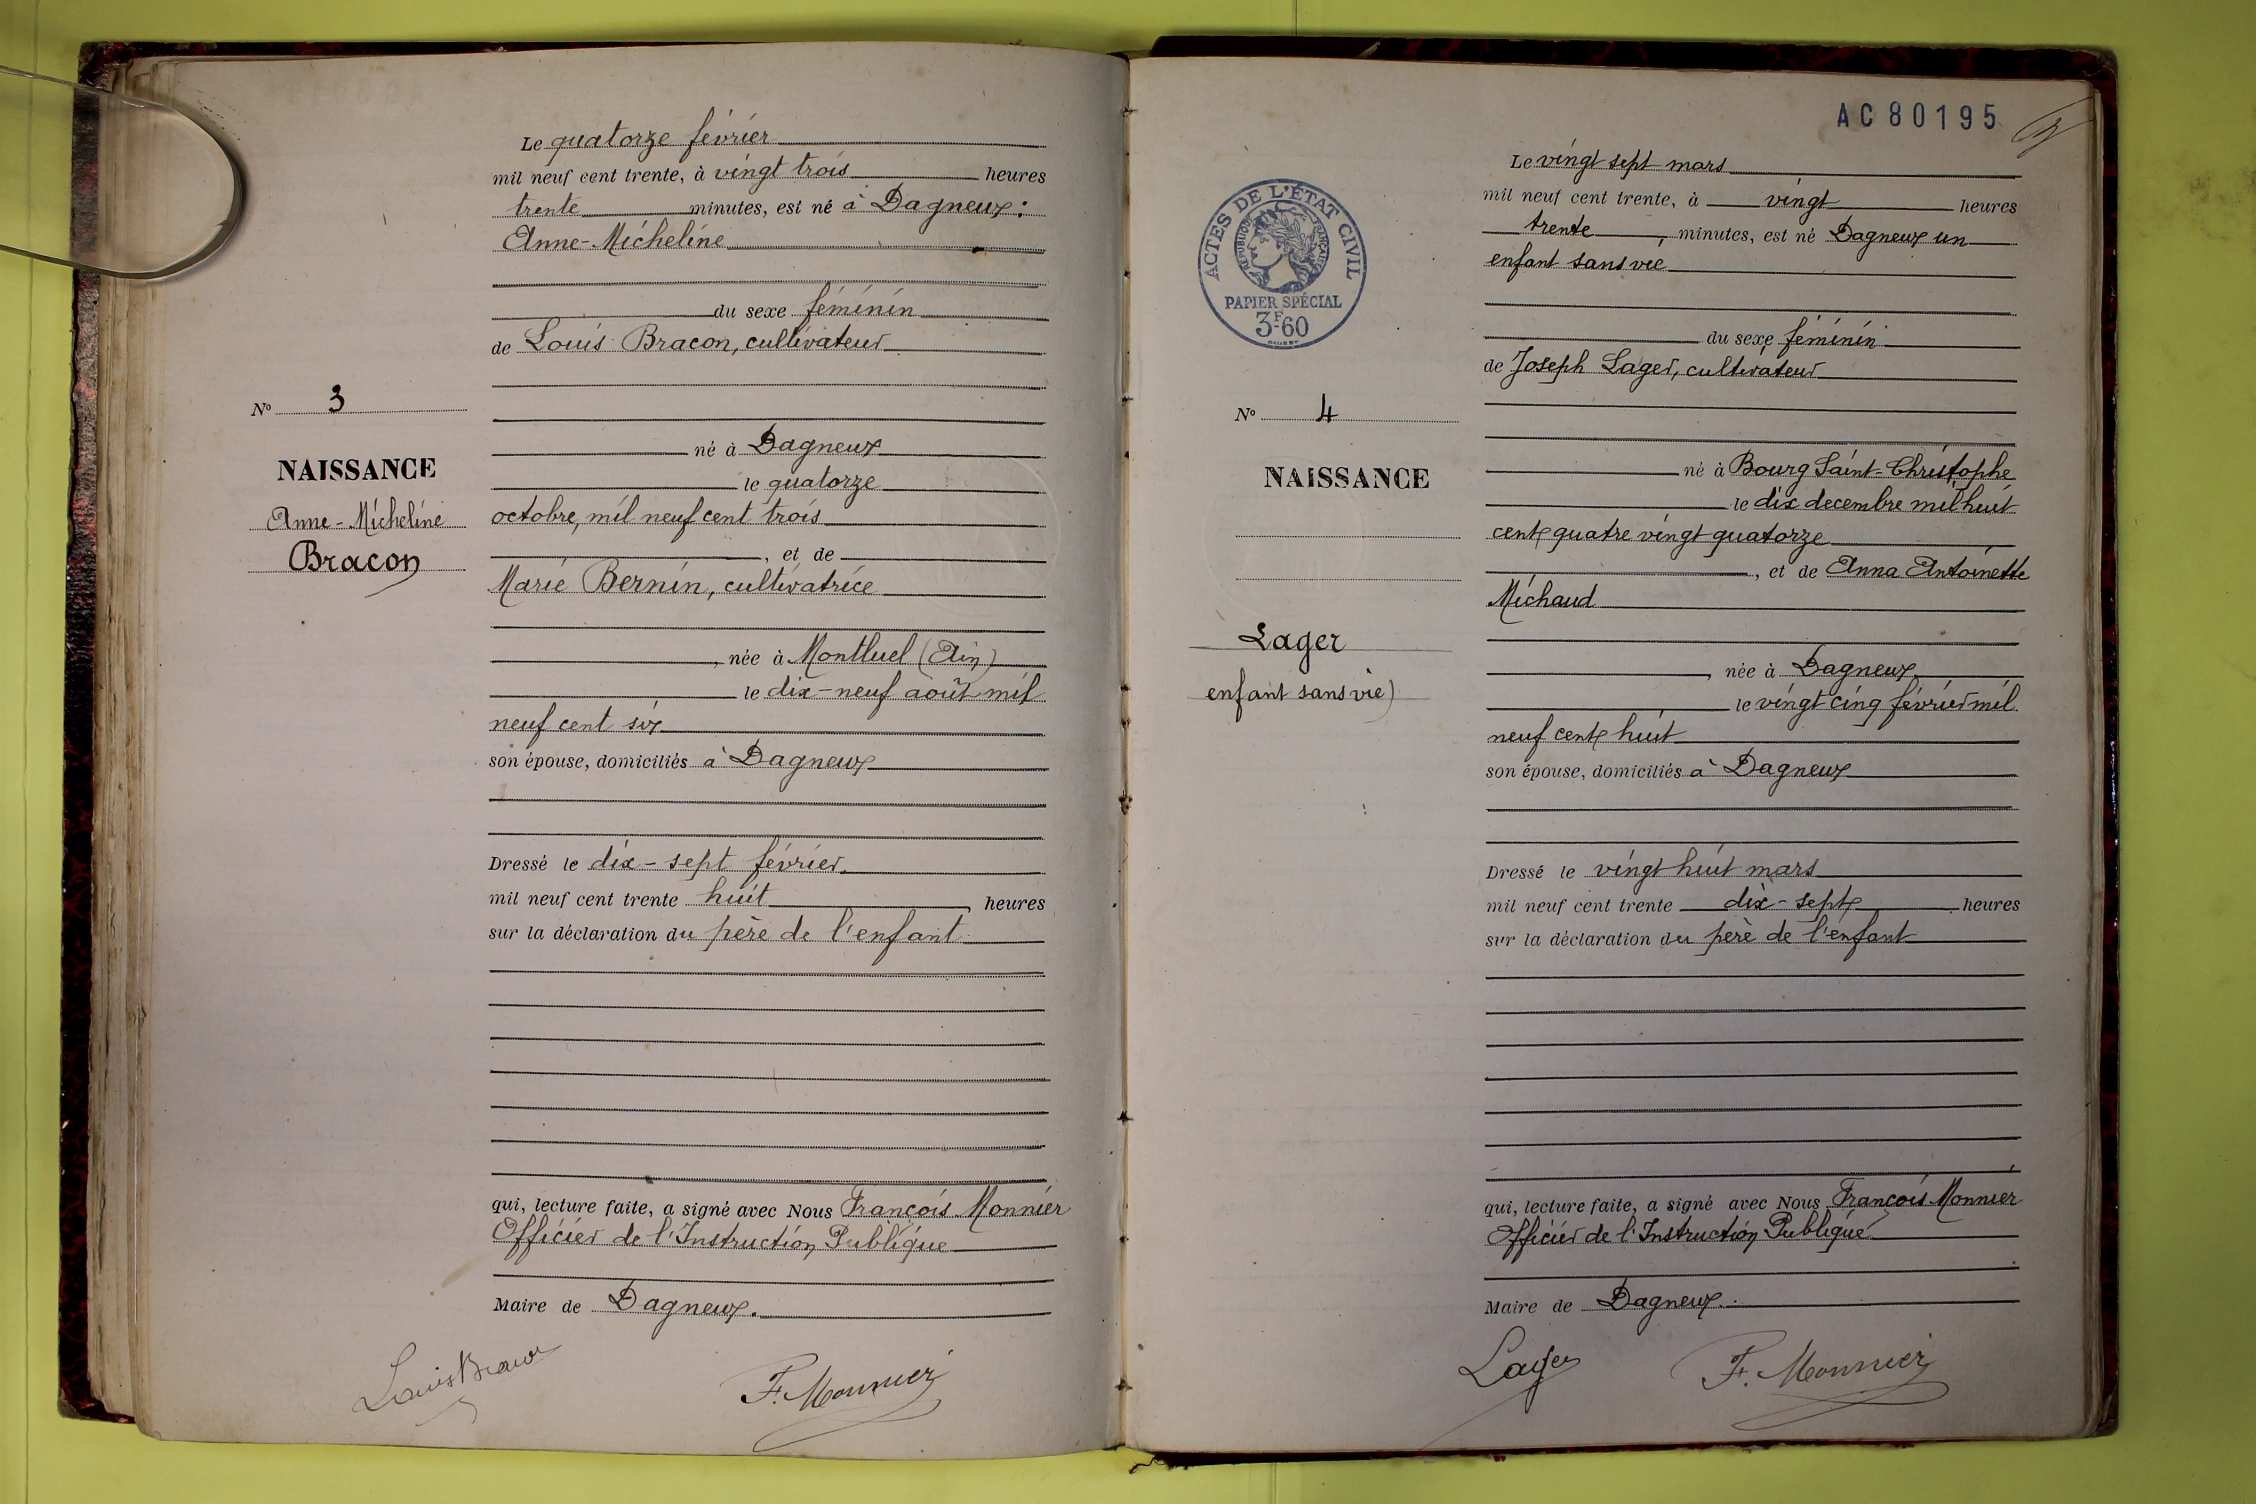 Le quatorze février
mil neuf cent trente, à vingt trois heures
trente minutes, est né à Dagneux:
Anne-Micheline
du sexe féminin
de Louis Bracon, cultivateur
né à Dagneux
le quatorze
octobre, mil neuf cent trois
, et de
Marie Bernin, cultivatrice
, née à Montluel (Ain)
le dix-neuf août mil
neuf cent six
son épouse, domiciliés à Dagneux
Dressé le dix-sept février.
mil neuf cent trente huit heures
sur la déclaration du père de l'enfant
qui, lecture faite, a signé avec Nous François Monnier
Officier de l'Instruction Publique
Maire de Dagneux.
Nº 3
NAISSANCE
Anne-Micheline
Bracon
Louis Bracon
F. Monnier
AC80195
ACTES DE L'ÉTAT CIVIL
RÉPUBLIQUE FRANÇAISE
PAPIER SPÉCIAL
3F60
Le vingt sept mars
mil neuf cent trente, à vingt heures
trente, minutes, est né Dagneux un
enfant sans vie
du sexe féminin
de Joseph Lager, cultivateur
né à Bourg Saint-Christophe
le dix decembre mil huit
cent quatre vingt quatorze
, et de Anna Antoinette
Michaud
, née à Dagneux
le vingt cinq février mil
neuf cent huit
son épouse, domiciliés à Dagneux
Dressé le vingt huit mars
mil neuf cent trente dix-sept heures
sur la déclaration du père de l'enfant
qui, lecture faite, a signé avec Nous François Monnier
Officier de l'Instruction Publique
Maire de Dagneux.
Nº 4
NAISSANCE
Lager
enfant sans vie)
Lager
F. Monnier